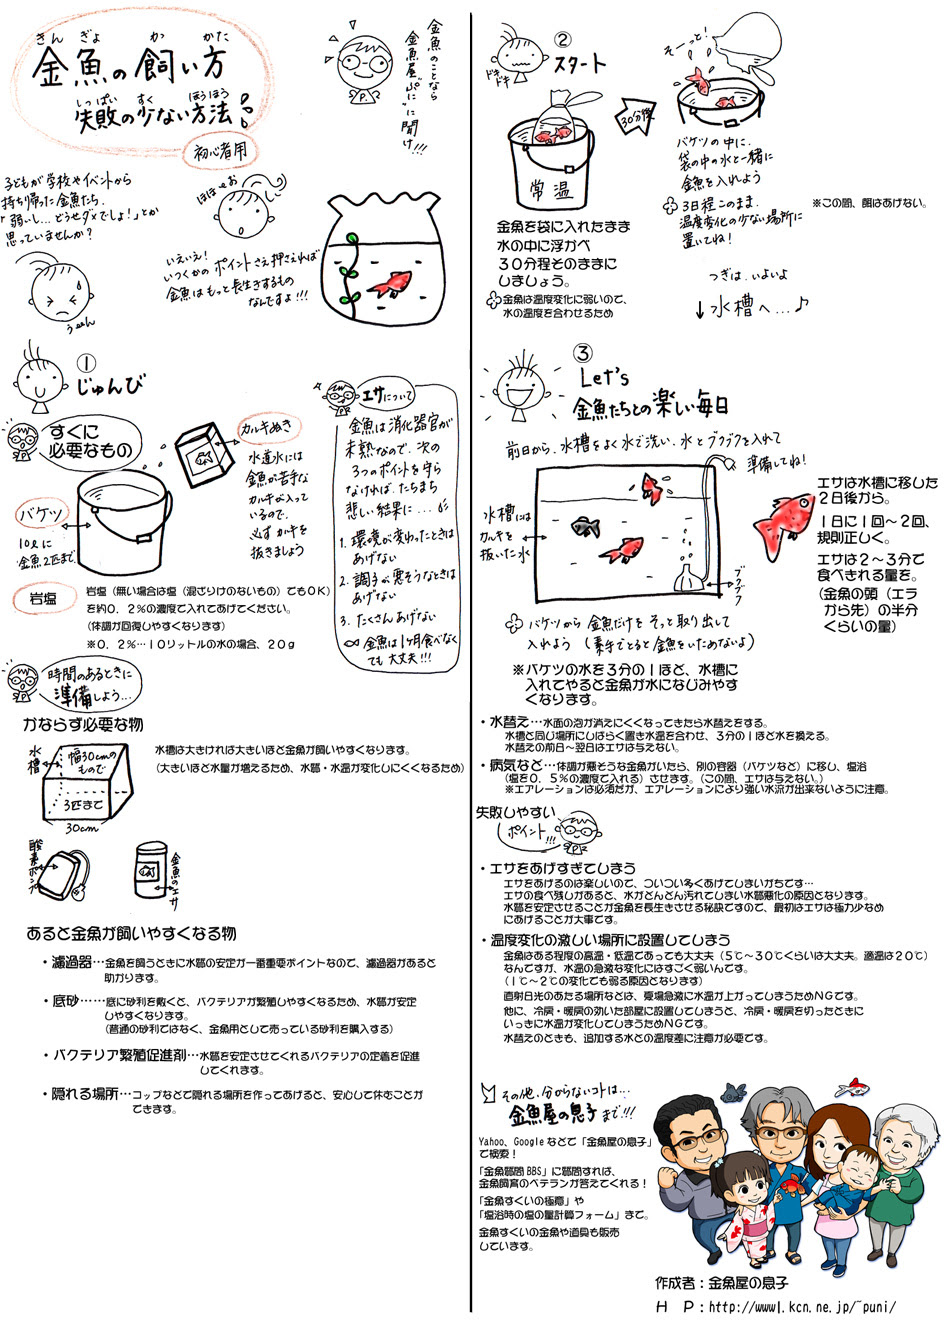 きん ぎょ か かた
金魚の飼い方
しっぱい すく ほうほう
失敗の少ない方法!!
初心者用
金魚のことなら
金魚屋"ぷに"に聞け!!!
子どもが学校やイベントから
持ち帰った金魚たち、
「弱いし…どうせダメでしょ!」とか
思っていませんか?
うーん
ほほーお
いえいえ!
いくつかのポイントさえ押さえれば
金魚はもっと長生きするもの
なんですよ!!!
①
じゅんび
すぐに
必要なもの
バケツ
10ℓに
金魚2匹まで
カルキぬき
水道水には
金魚が苦手な
カルキが入って
いるので、
必ずカルキを
抜きましょう
岩塩
岩塩(無い場合は塩(混ざりけのないもの)でもOK)
を約0.2%の濃度で入れてあげてください。
(体調が回復しやすくなります)
※0.2%…10リットルの水の場合、20g
エサについて
金魚は消化器官が
未熟なので、次の
3つのポイントを守ら
なければ、たちまち
悲しい結果に…
1. 環境が変わったときは
あげない
2. 調子が悪そうなときは
あげない
3. たくさんあげない
金魚は1ヶ月食べなく
ても大丈夫!!!
時間のあるときに
準備しよう…
かならず必要な物
水槽
幅30cmの
もので
3匹まで
30cm
水槽は大きければ大きいほど金魚が飼いやすくなります。
(大きいほど水量が増えるため、水質・水温が変化しにくくなるため)
酸素ポンプ
金魚のエサ
あると金魚が飼いやすくなる物
・濾過器…金魚を飼うときに水質の安定が一番重要ポイントなので、濾過器があると
助かります。
・底砂……底に砂利を敷くと、バクテリアが繁殖しやすくなるため、水質が安定
しやすくなります。
(普通の砂利ではなく、金魚用として売っている砂利を購入する)
・バクテリア繁殖促進剤…水質を安定させてくれるバクテリアの定着を促進
してくれます。
・隠れる場所…コップなどで隠れる場所を作ってあげると、安心して休むことが
できます。
②
スタート
ドキドキ
常温
30分後
金魚を袋に入れたまま
水の中に浮かべ
30分程そのままに
しましょう。
金魚は温度変化に弱いので、
水の温度を合わせるため
そーっと!
バケツの中に、
袋の中の水と一緒に
金魚を入れよう
3日程このまま、
温度変化の少ない場所に
置いてね!
※この間、餌はあげない。
つぎは、いよいよ
↓水槽へ…♪
③
Let's
金魚たちとの楽しい毎日
前日から、水槽をよく水で洗い、水とブクブクを入れて
準備してね!
水槽には
カルキを
抜いた水
ブクブク
エサは水槽に移した
2日後から。
1日に1回~2回、
規則正しく。
エサは2~3分で
食べきれる量を。
(金魚の頭(エラ
から先)の半分
くらいの量)
バケツから金魚だけをそっと取り出して
入れよう(素手でとると金魚をいためないよ)
※バケツの水を3分の1ほど、水槽に
入れてやると金魚が水になじみやす
くなります。
・水替え…水面の泡が消えにくくなってきたら水替えをする。
水槽と同じ場所にしばらく置き水温を合わせ、3分の1ほど水を換える。
水替えの前日~翌日はエサは与えない。
・病気など…体調が悪そうな金魚がいたら、別の容器(バケツなど)に移し、塩浴
(塩を0.5%の濃度で入れる)させます。(この間、エサは与えない。)
※エアレーションは必須だが、エアレーションにより強い水流が出来ないように注意。
失敗しやすい
ポイント!!!
・エサをあげすぎてしまう
エサをあげるのは楽しいので、ついつい多くあげてしまいがちです…
エサの食べ残しがあると、水がどんどん汚れてしまい水質悪化の原因となります。
水質を安定させることが金魚を長生きさせる秘訣ですので、最初はエサは極力少なめ
にあげることが大事です。
・温度変化の激しい場所に設置してしまう
金魚はある程度の高温・低温であっても大丈夫(5℃~30℃くらいは大丈夫。適温は20℃)
なんですが、水温の急激な変化にはすごく弱いんです。
(1℃~2℃の変化でも弱る原因となります)
直射日光のあたる場所などは、夏場急激に水温が上がってしまうためNGです。
他に、冷房・暖房の効いた部屋に設置してしまうと、冷房・暖房を切ったときに
いっきに水温が変化してしまうためNGです。
水替えのときも、追加する水との温度差に注意が必要です。
その他、分からないコトは…
金魚屋の息子まで!!!
Yahoo、Googleなどで「金魚屋の息子」
で検索!
「金魚質問BBS」に質問すれば、
金魚飼育のベテランが答えてくれる!
「金魚すくいの極意」や
「塩浴時の塩の量計算フォーム」まで。
金魚すくいの金魚や道具も販売
しています。
作成者:金魚屋の息子
HP:http://www1.kcn.ne.jp/~puni/